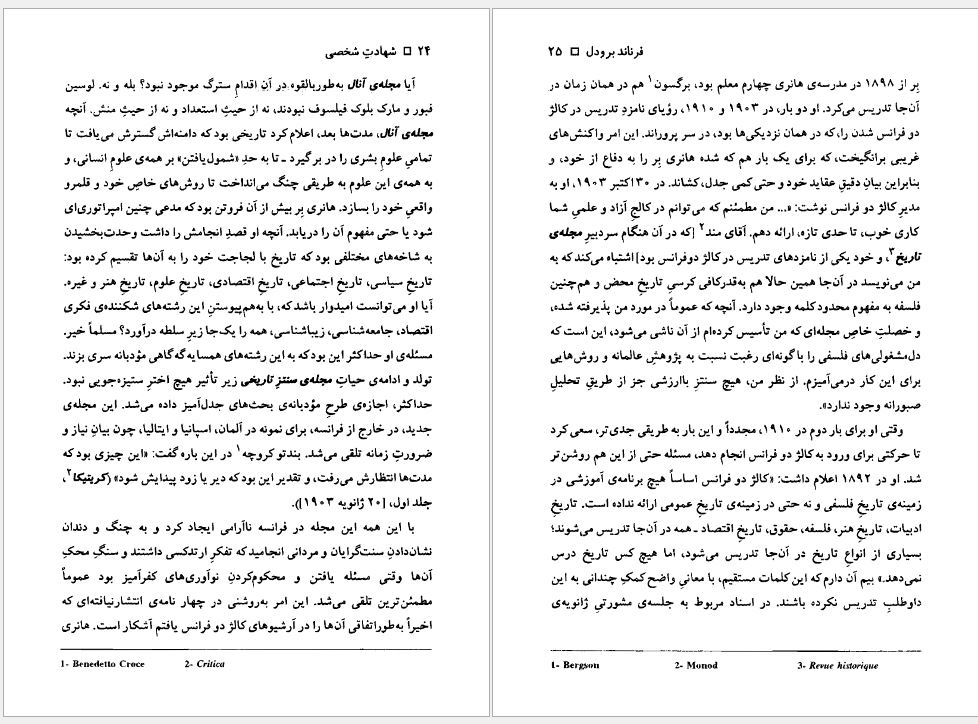 ۲۴ □ شهادتِ شخصی
آیا مجله‌ی آنال به‌طوربالقوه در آن اقدامِ سترگ موجود نبود؟ بله و نه. لوسین
فبور و مارک بلوک فیلسوف نبودند، نه از حیثِ استعداد و نه از حیثِ منش. آنچه
مجله‌ی آنال، مدت‌ها بعد، اعلام کرد تاریخی بود که دامنه‌اش گسترش می‌یافت تا
تمامیِ علومِ بشری را در برگیرد ـ تا به حدِ «شمول‌یافتن» بر همه‌ی علومِ انسانی، و
به همه‌ی این علوم به طریقی چنگ می‌انداخت تا روش‌های خاصِ خود و قلمرو
واقعیِ خود را بسازد. هانری بِر بیش از آن فروتن بود که مدعی چنین امپراتوری‌ای
شود یا حتی مفهوم آن را دریابد. آنچه او قصدِ انجامش را داشت وحدت‌بخشیدن
به شاخه‌های مختلفی بود که تاریخ با لجاجت خود را به آن‌ها تقسیم کرده بود:
تاریخِ سیاسی، تاریخِ اجتماعی، تاریخِ اقتصادی، تاریخِ علوم، تاریخِ هنر و غیره.
آیا او می‌توانست امیدوار باشد که، با به‌هم‌پیوستنِ این رشته‌های شکننده‌ی فکری
اقتصاد، جامعه‌شناسی، زیباشناسی، همه را یک‌جا زیرِ سلطه درآورد؟ مسلماً خیر.
مسئله‌ی او حداکثر این بود که به این رشته‌های همسایه گه‌گاهی مؤدبانه سری بزند.
تولد و ادامه‌ی حیاتِ مجله‌ی سنتزِ تاریخی زیر تأثیر هیچ اخترِ ستیزه‌جویی نبود.
حداکثر، اجازه‌ی طرحِ مؤدبانه‌ی بحث‌های جدل‌آمیز داده می‌شد. این مجله‌ی
جدید، در خارج از فرانسه، برای نمونه در آلمان، اسپانیا و ایتالیا، چون بیانِ نیاز و
ضرورتِ زمانه تلقی می‌شد. بندتو کروچه۱ در این باره گفت: «این چیزی بود که
مدت‌ها انتظارش می‌رفت، و تقدیر این بود که دیر یا زود پیدایش شود» (کریتیکا۲،
جلد اول، [۲۰ ژانویه ۱۹۰۳]).
با این همه این مجله در فرانسه ناآرامی ایجاد کرد و به چنگ و دندان
نشان‌دادنِ سنت‌گرایان و مردانی انجامید که تفکرِ ارتدکسی داشتند و سنگِ محکِ
آن‌ها وقتی مسئله یافتن و محکوم‌کردنِ نوآوری‌های کفرآمیز بود عموماً
مطمئن‌ترین تلقی می‌شد. این امر به‌روشنی در چهار نامه‌ی انتشارنیافته‌ای که
اخیراً به‌طوراتفاقی آن‌ها را در آرشیوهای کالژ دو فرانس یافتم آشکار است. هانری
1- Benedetto Croce 2- Critica
فرناند برودل □ ۲۵
بِر از ۱۸۹۸ در مدرسه‌ی هانری چهارم معلم بود، برگسون۱ هم در همان زمان در
آن‌جا تدریس می‌کرد. او دو بار، در ۱۹۰۳ و ۱۹۱۰، رؤیای نامزدِ تدریس در کالژ
دو فرانس شدن را، که در همان نزدیکی‌ها بود، در سر پروراند. این امر واکنش‌های
غریبی برانگیخت، که برای یک بار هم که شده هانری بِر را به دفاع از خود، و
بنابراین بیانِ دقیقِ عقاید خود و حتی کمی جدل، کشاند. در ۳۰ اکتبر ۱۹۰۳، او به
مدیر کالژ دو فرانس نوشت: «... من مطمئنم که می‌توانم در کالجِ آزاد و علمیِ شما
کاری خوب، تا حدی تازه، ارائه دهم. آقای مند۲ [که در آن هنگام سردبیرِ مجله‌ی
تاریخ۳، و خود یکی از نامزدهای تدریس در کالژ دوفرانس بود] اشتباه می‌کند که به
من می‌نویسد در آن‌جا همین حالا هم به‌قدرکافی کرسیِ تاریخِ محض و هم‌چنین
فلسفه به مفهوم محدودکلمه وجود دارد. آنچه که عموماً در مورد من پذیرفته شده،
و خصلتِ خاصِ مجله‌ای که من تأسیس کرده‌ام از آن ناشی می‌شود، این است که
دل‌مشغولی‌های فلسفی را با گونه‌ای رغبت نسبت به پژوهشِ عالمانه و روش‌هایی
برای این کار درمی‌آمیزم. از نظر من، هیچ سنتزِ باارزشی جز از طریقِ تحلیلِ
صبورانه وجود ندارد».
وقتی او برای بار دوم در ۱۹۱۰، مجدداً و این بار به طریقی جدی‌تر، سعی کرد
تا حرکتی برای ورود به کالژ دو فرانس انجام دهد، مسئله حتی از این هم روشن‌تر
شد. او در ۱۸۹۲ اعلام داشت: «کالژ دو فرانس اساساً هیچ برنامه‌ی آموزشی در
زمینه‌ی تاریخِ فلسفی و نه حتی در زمینه‌ی تاریخِ عمومی ارائه نداده است. تاریخِ
ادبیات، تاریخِ هنر، فلسفه، حقوق، تاریخِ اقتصاد ـ همه در آن‌جا تدریس می‌شوند؛
بسیاری از انواعِ تاریخ در آن‌جا تدریس می‌شود، اما هیچ کس تاریخ درس
نمی‌دهد.» بیم آن دارم که این کلمات مستقیم، با معانیِ واضح کمکِ چندانی به این
داوطلبِ تدریس نکرده باشند. در اسناد مربوط به جلسه‌ی مشورتیِ ژانویه‌ی
1- Bergson 2- Monod 3- Revue historique